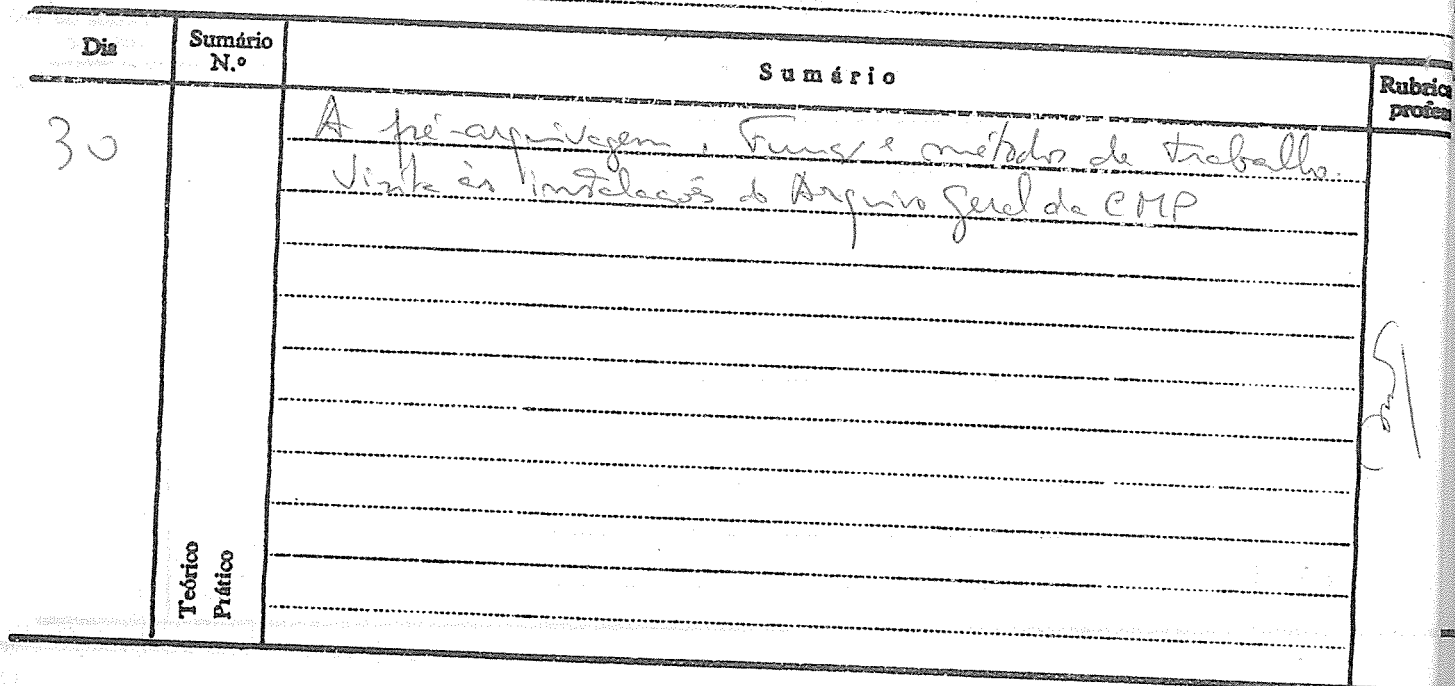 Dia
Sumário
N.º
Sumário
Rubrica
profes
30
A pré-arquivagem. e métodos de trabalho.
Visita às instalações do Arquivo Geral da CMP
Teórico
Prático